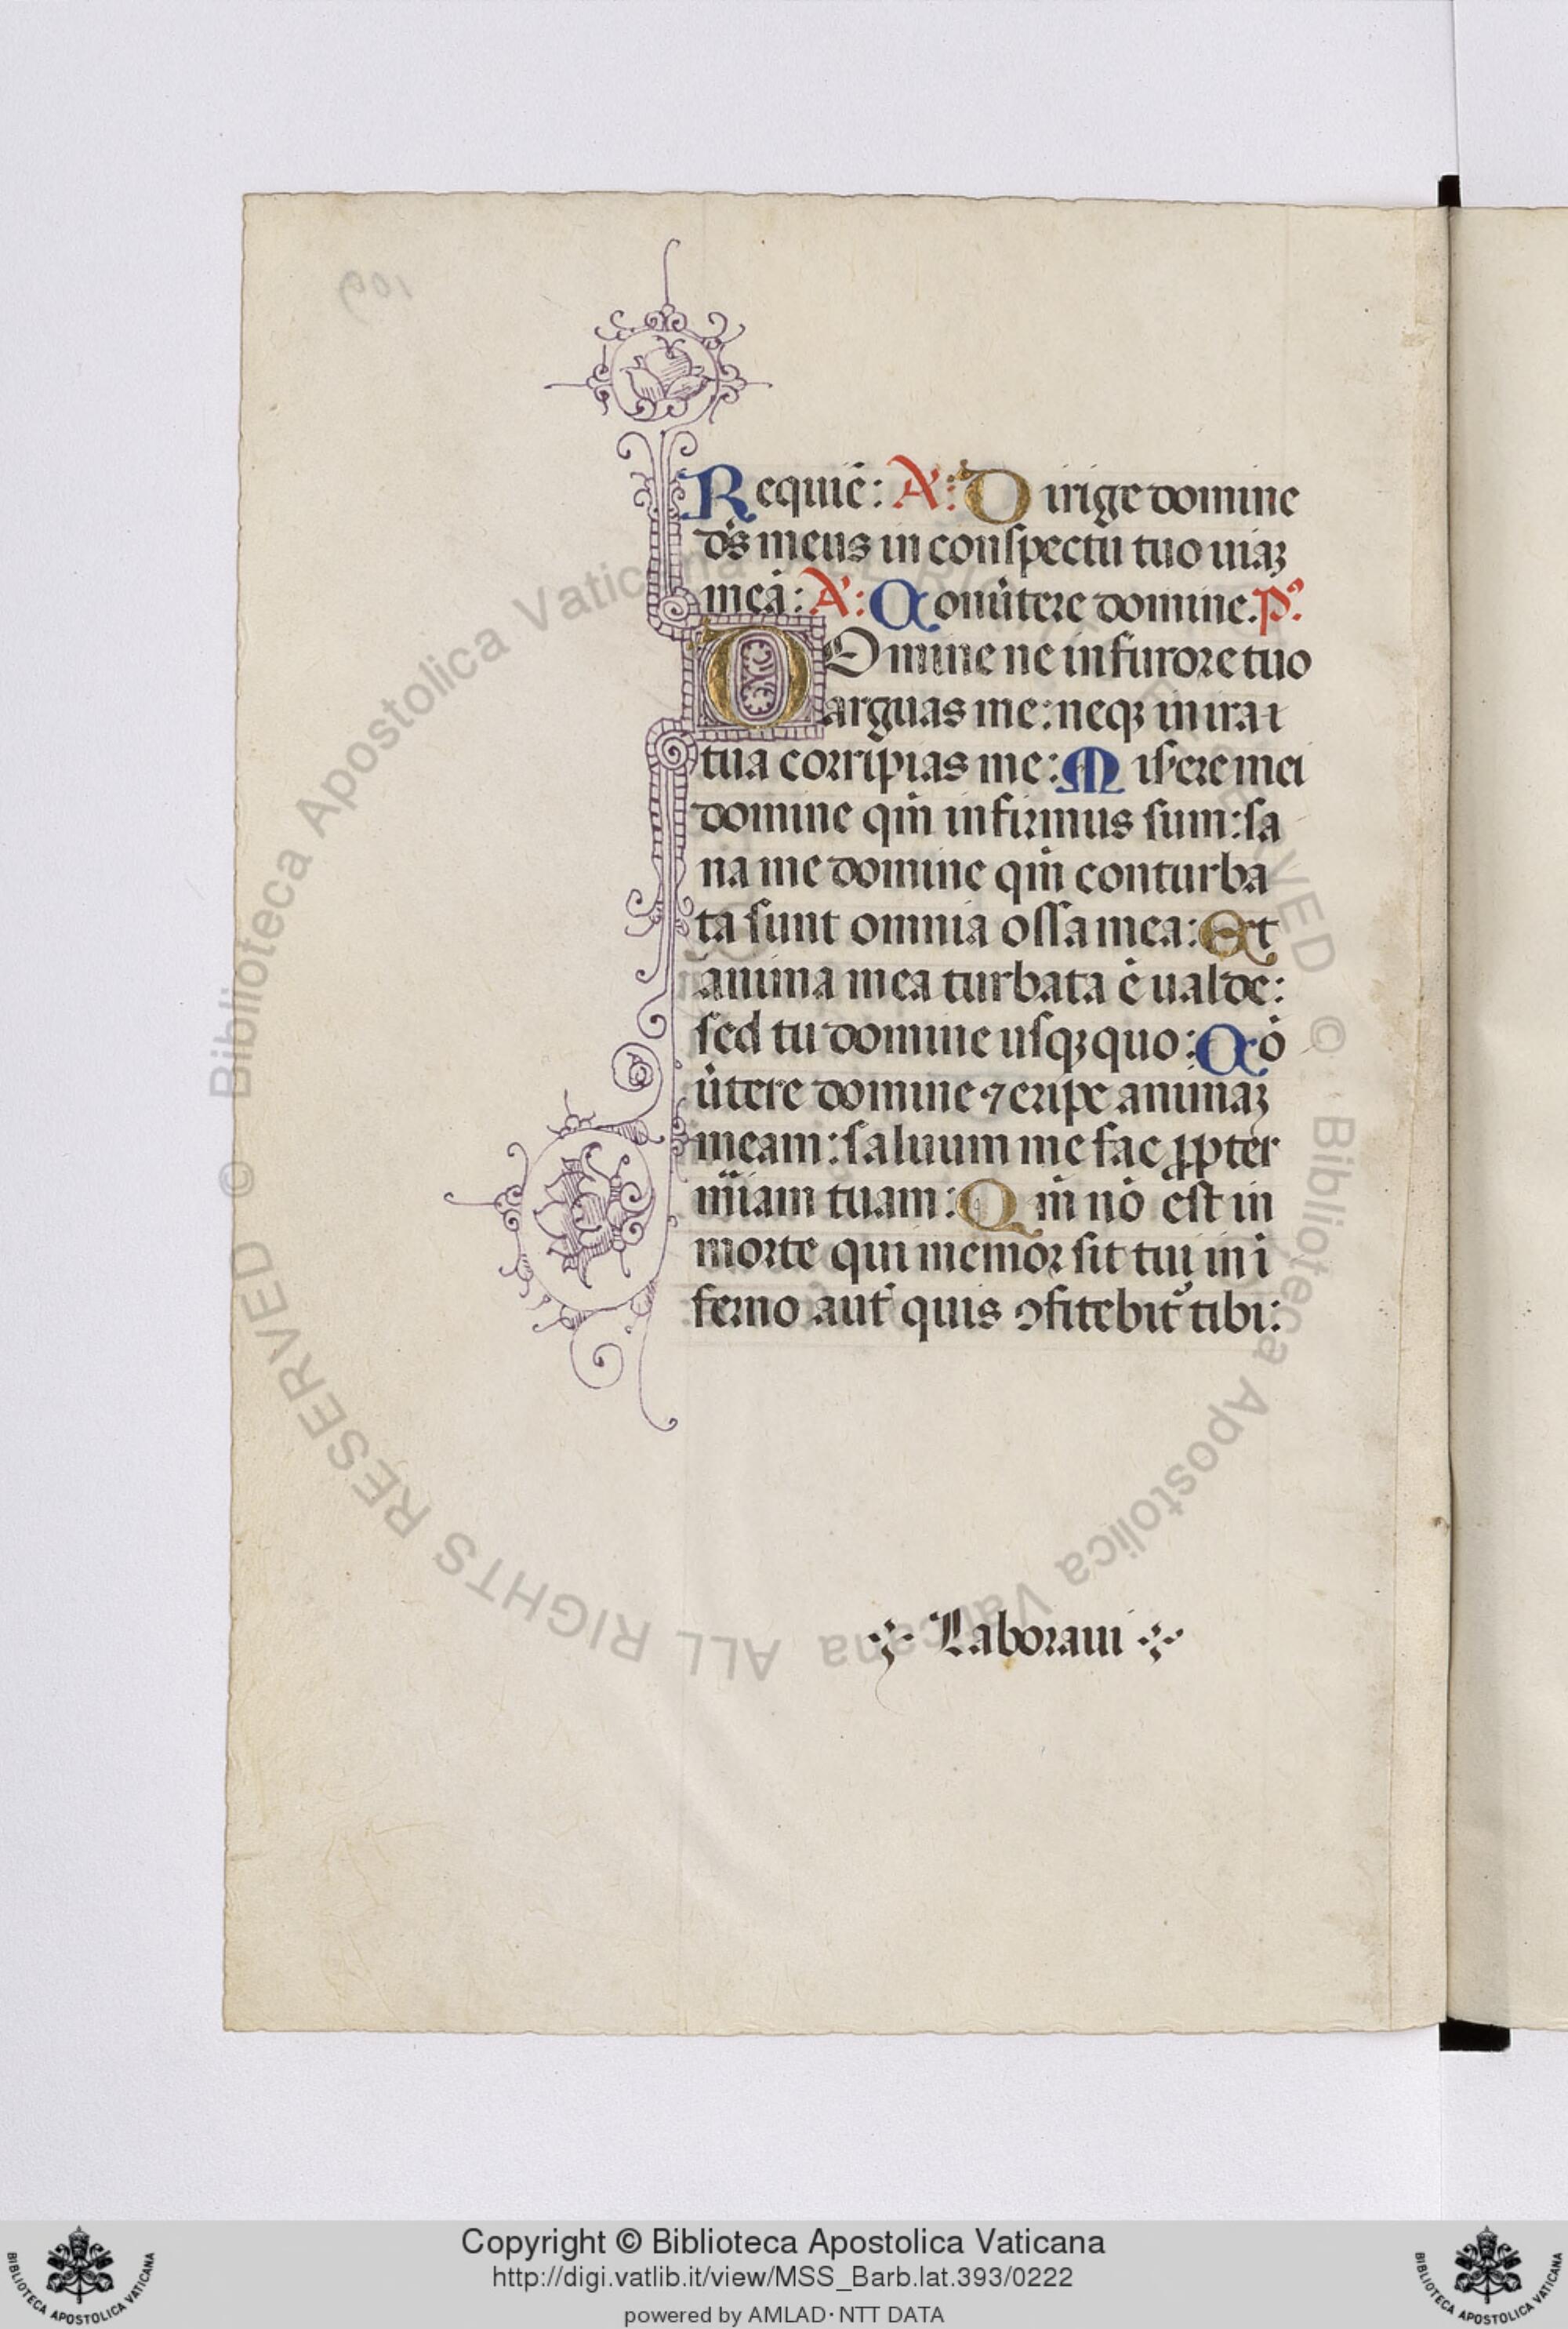 Requiē: A̕: Dirige domine
d̕s meus in conspectu tuo uiaꝫ
meā: A̕: Conu̕tere domine. p̕s
DOmine ne in furore tuo
arguas me: neqꝫ in ira ı
tua corripias me: Mis̕ere mei
domine qm̄ infirmus sum: sa
na me domine qm̄ conturba
ta sunt omnia ossa mea: Et
anima mea turbata ē ualde:
sed tu domine usqꝫ quo: Cō
u̕tere domine ⁊ eripe animaꝫ
meam: saluum me fac ꝓpter
mīam tuam: Qm̄ nō est in
morte qui memor sit tui, in ī
ferno aut̄ quis ꝯfitebit᷑ tibi:
Laboraui
Copyright © Biblioteca Apostolica Vaticana
http://digi.vatlib.it/view/MSS_Barb.lat.393/0222
powered by AMLAD·NTT DATA
© Biblioteca Apostolica Vaticana ALL RIGHTS RESERVED © Biblioteca Apostolica Vaticana ALL RIGHTS RESERVED
BIBLIOTECA APOSTOLICA VATICANA
BIBLIOTECA APOSTOLICA VATICANA